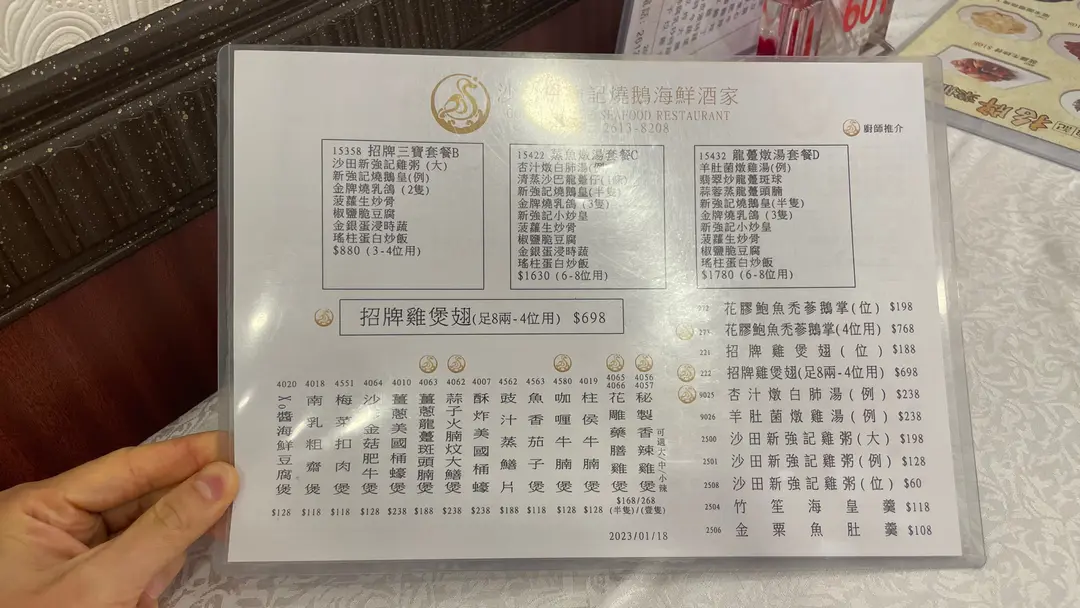 沙 記燒鵝海鮮酒家
SEAFOOD RESTAURANT
2613-8208
廚師推介
15358 招牌三寶套餐B
沙田新強記雞粥(大)
新強記燒鵝皇(例)
金牌燒乳鴿(2隻)
菠蘿生炒骨
椒鹽脆豆腐
金銀蛋浸時蔬
瑤柱蛋白炒飯
$880 (3-4位用)
15422 蒸魚燉湯套餐C
杏汁燉白肺湯(例)
清蒸沙巴龍躉仔
新強記燒鵝皇(半隻)
金牌燒乳鴿(3隻)
新強記小炒皇
菠蘿生炒骨
椒鹽脆豆腐
金銀蛋浸時蔬
瑤柱蛋白炒飯
$1630 (6-8位用)
15432 龍躉燉湯套餐D
羊肚菌燉雞湯(例)
翡翠炒龍躉斑球
蒜蓉蒸龍躉頭腩
新強記燒鵝皇(半隻)
金牌燒乳鴿(3隻)
新強記小炒皇
菠蘿生炒骨
椒鹽脆豆腐
瑤柱蛋白炒飯
$1780 (6-8位用)
招牌雞煲翅(足8兩-4位用) $698
花膠鮑魚禿蔘鵝掌(位) $198
花膠鮑魚禿蔘鵝掌(4位用) $768
221 招牌雞煲翅(位) $188
222 招牌雞煲翅(足8兩-4位用) $698
9025 杏汁燉白肺湯(例) $238
9026 羊肚菌燉雞湯(例) $238
2500 沙田新強記雞粥(大) $198
2501 沙田新強記雞粥(例) $128
2508 沙田新強記雞粥(位) $60
2504 竹笙海皇羹 $118
2506 金粟魚肚羹 $108
4020 Xo醬海鮮豆腐煲 $128
4018 南乳粗齋煲 $118
4551 梅菜扣肉煲 $118
4064 沙爹金菇肥牛煲 $128
4010 薑蔥美國桶蠔煲 $238
4063 薑蔥龍躉斑頭腩煲 $188
4062 蒜子火腩炆大鱔煲 $238
4007 酥炸美國桶蠔 $238
4562 豉汁蒸鱔片 $188
4563 魚香茄子煲 $118
4580 咖喱牛腩煲 $128
4019 柱侯牛腩煲 $128
4065 4066 花雕藥膳雞煲
4056 4057 秘製香辣雞煲
可選大中小辣
$168/268
(半隻)/(壹隻)
2023/01/18